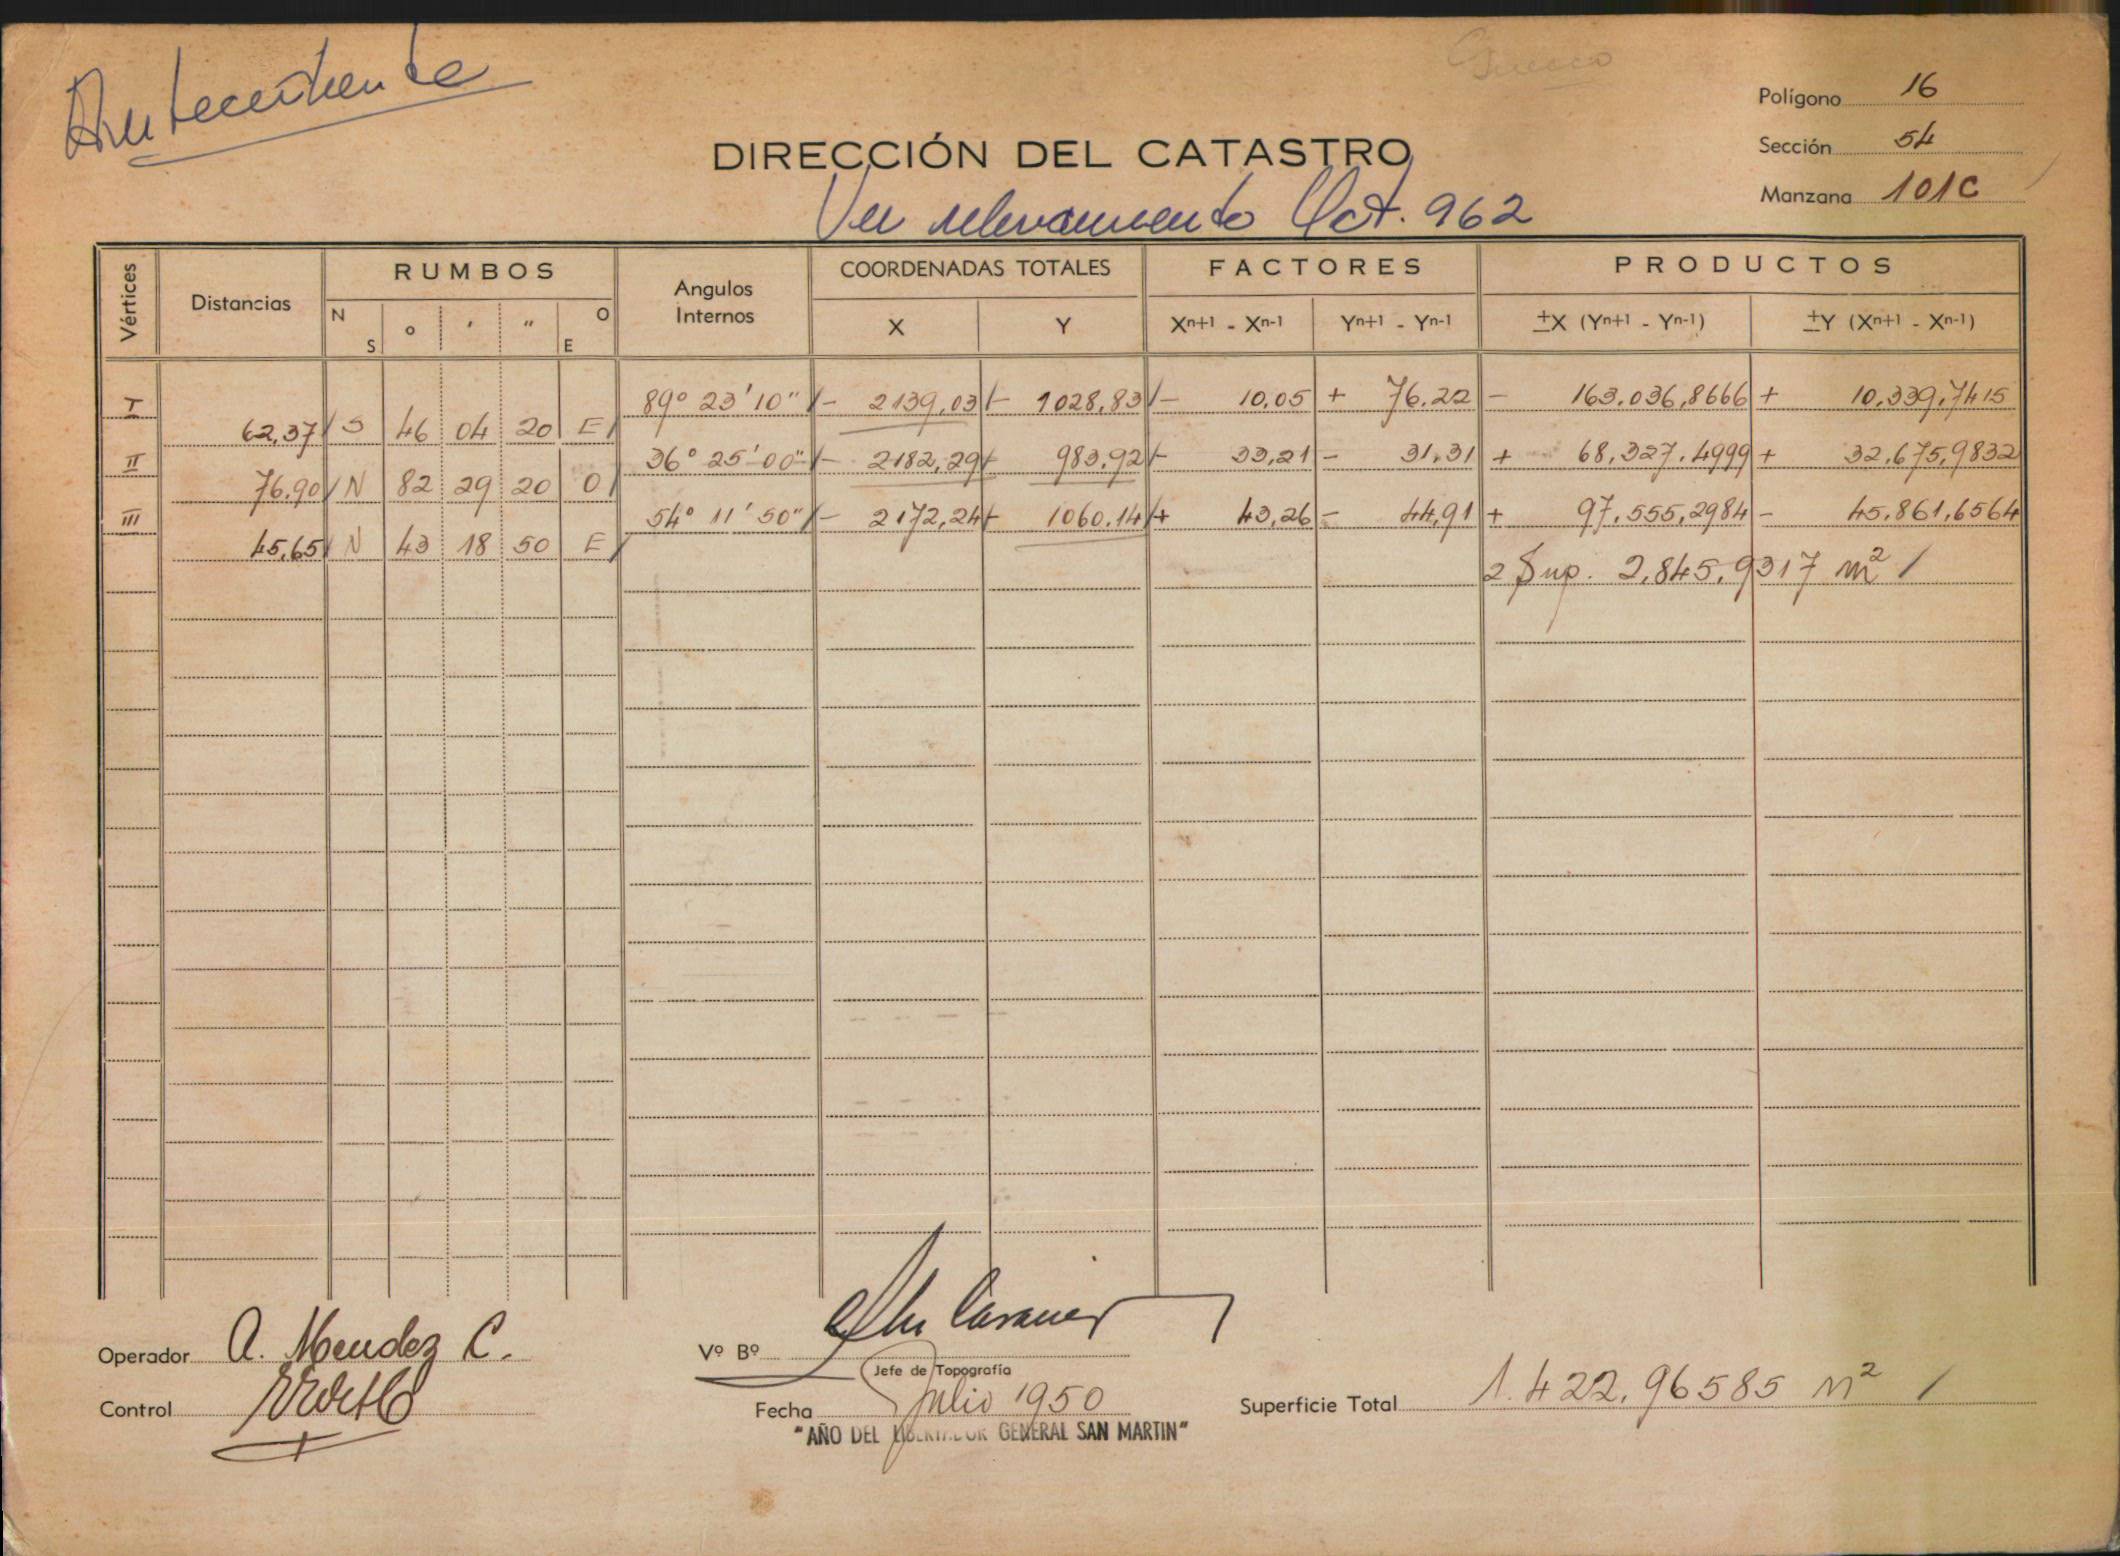 Antecedente
Polígono 16
Sección 54
Manzana 101C
DIRECCIÓN DEL CATASTRO
Ver relevamiento Oct. 962
Vértices Distancias RUMBOS Angulos Internos COORDENADAS TOTALES FACTORES PRODUCTOS
N S ° ' " O E X Y Xn+1 - Xn-1 Yn+1 - Yn-1 ±X (Yn+1 - Yn-1) ±Y (Xn+1 - Xn-1)
I 89° 23' 10" / - 2139,03 / - 1028,83 / - 10,05 + 76,22 - 163.036,8666 + 10.339,7415
62,37 / S 46 04 20 E /
II 36° 25' 00" / - 2182,29 / 983,92 / - 33,21 - 31,31 + 68.327,4999 + 32.675,9832
76,90 / N 82 29 20 O /
III 54° 11' 50" / - 2172,24 / 1060,14 / + 43,26 - 44,91 + 97.555,2984 - 45.861,6564
45,65 / N 43 18 50 E /
2 Sup. 2,845,9317 m² /
Operador A. Mendez C.
Control
Vº Bº
Jefe de Topografía
Fecha Julio 1950
"AÑO DEL LIBERTADOR GENERAL SAN MARTIN"
Superficie Total 1.422,96585 m² /